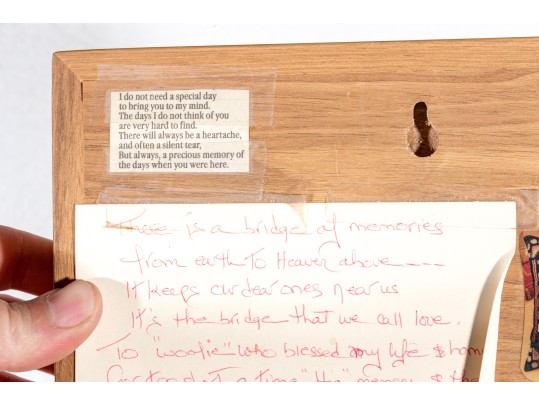 I do not need a special day
to bring you to my mind.
The days I do not think of you
are very hard to find.
There will always be a heartache,
and often a silent tear,
But always, a precious memory of
the days when you were here.
There is a bridge of memories
from earth To Heaven above----
It keeps our dear ones near us
It's the bridge that we call love.
To "woofie" who blessed my life & hom